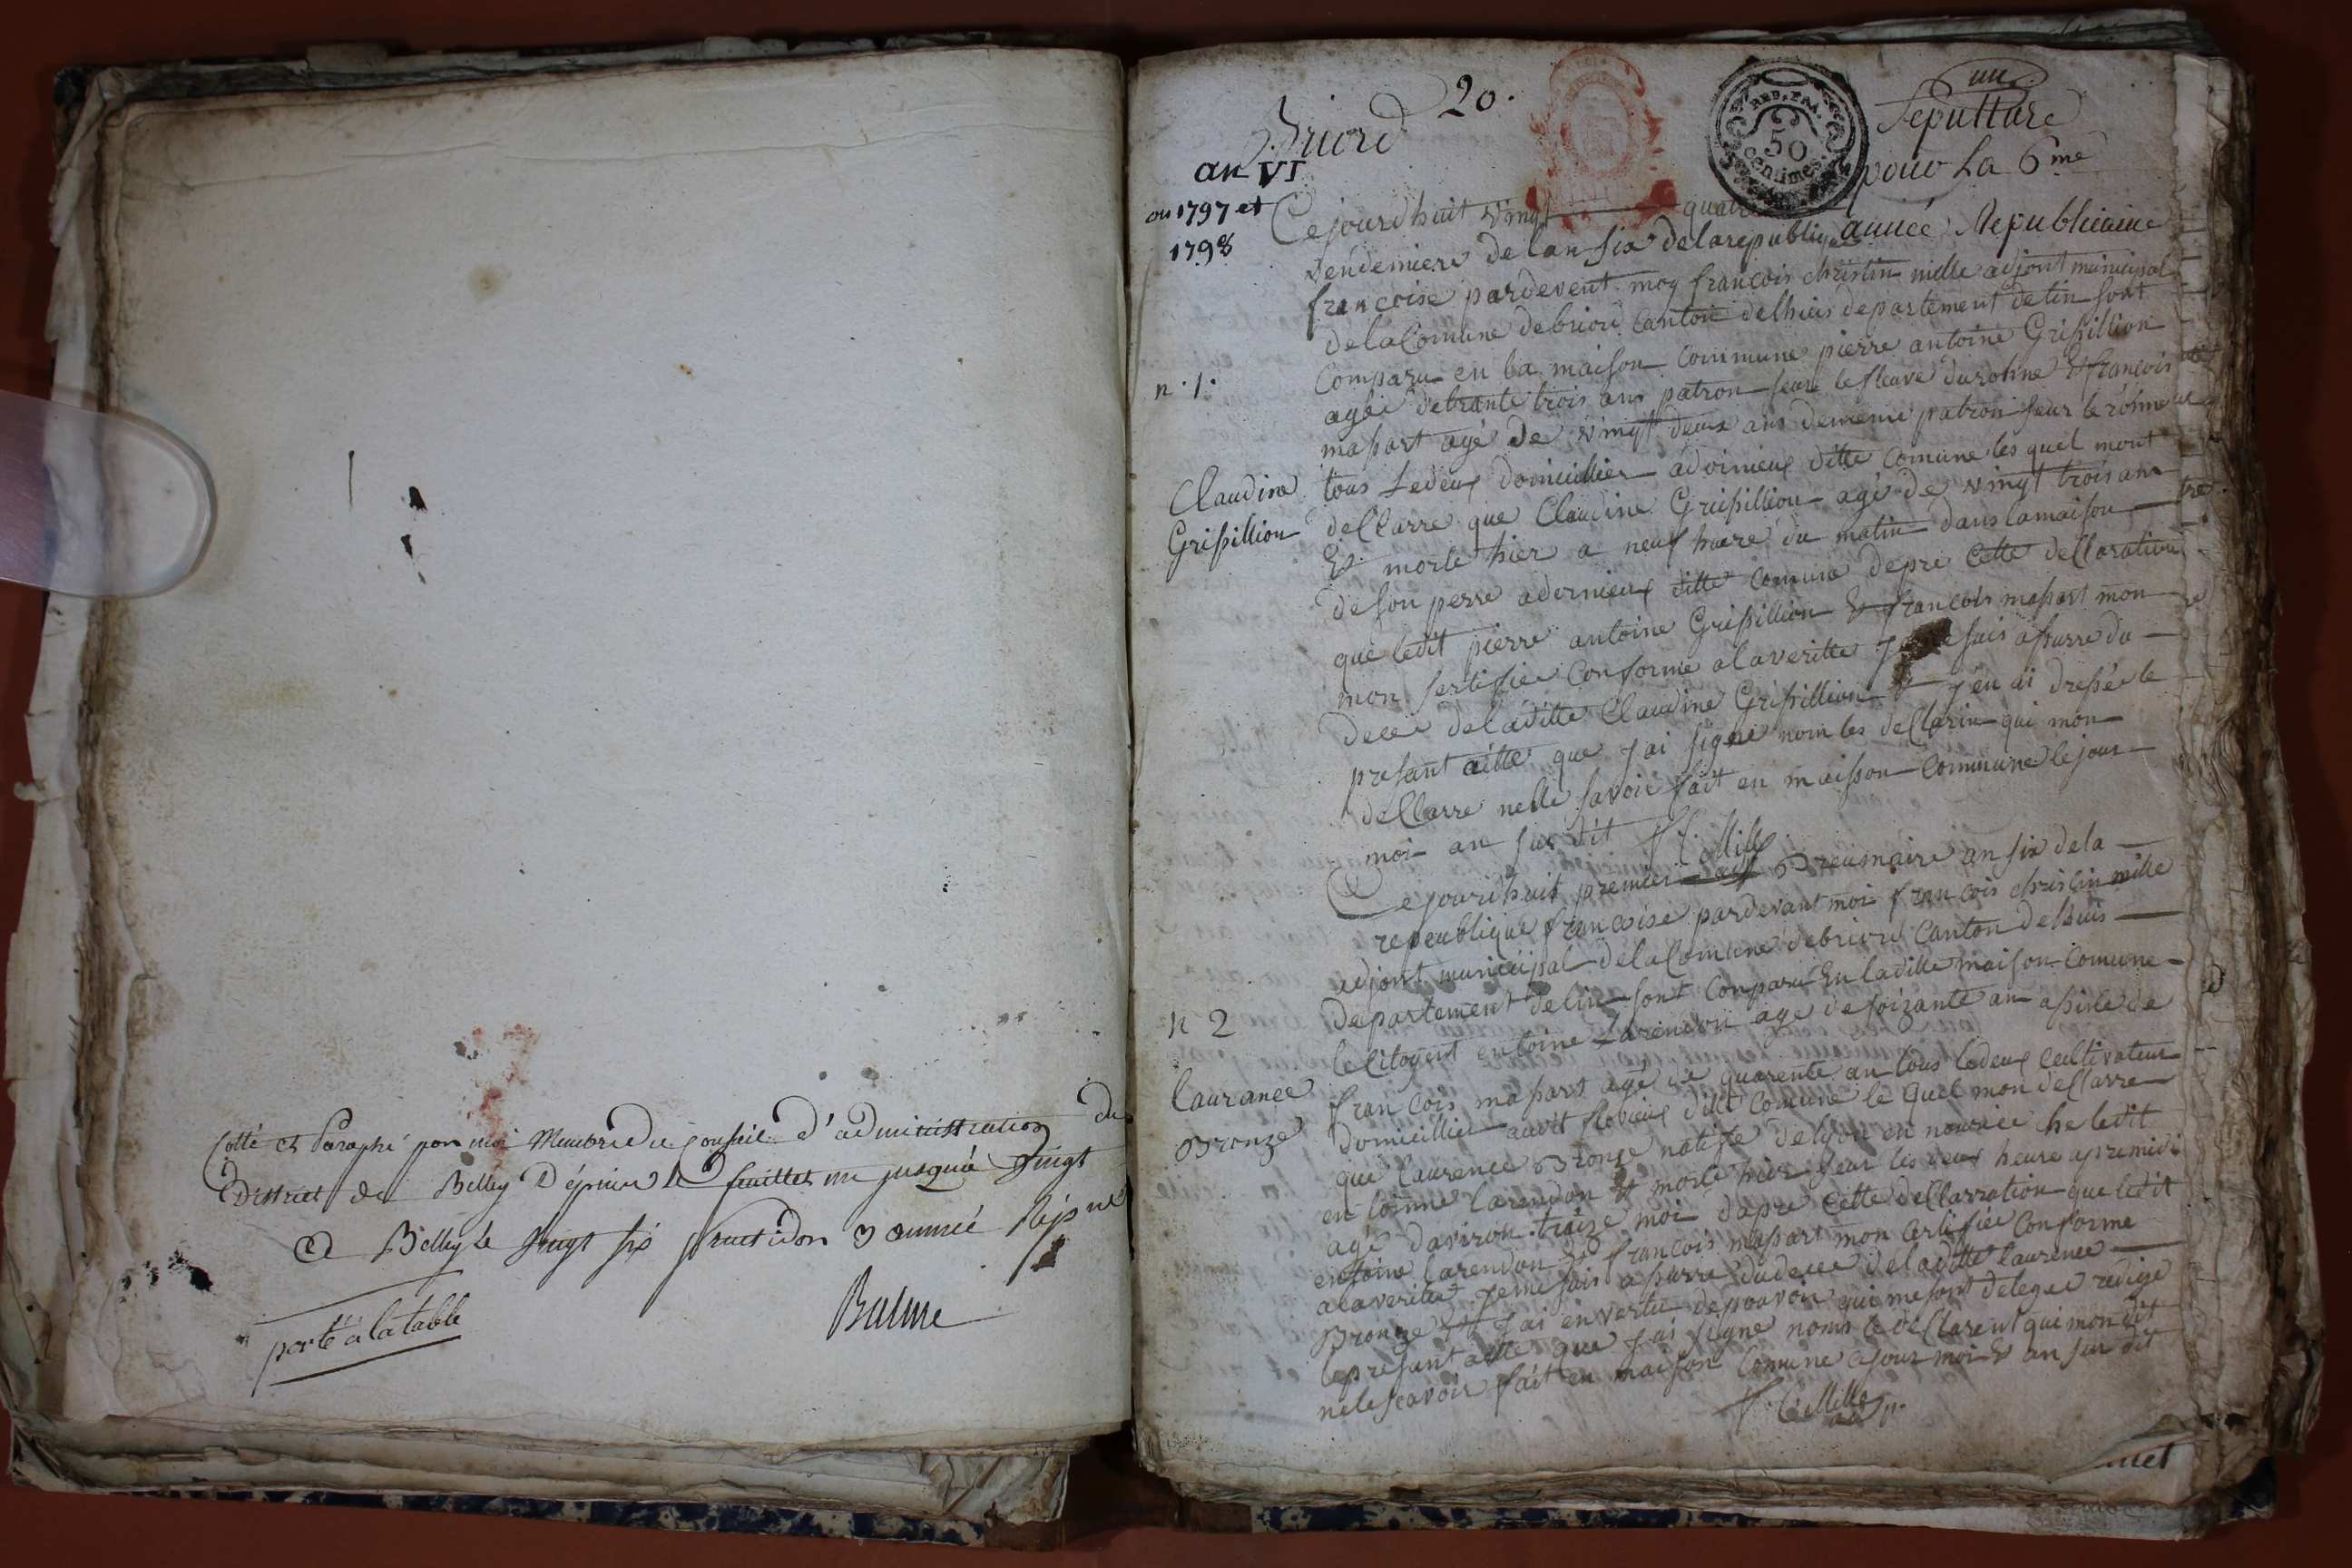 Cotté et Paraphé par moi Membre du Conseil d'administration du
District de Belley Dépuis le feuillet un jusqu'a vingt
A Belley le vingt six fructidor 3 année Rép.ne
Balme
porté à la table
Briord 20.
un
Sepulture
pour La 6me
année Republicaine
REP. FRA.
50
centimes
an VI
ou 1797 et
1798
Cejourdhuit vingt quatre
vendemiere de lan six de la republique
francoise pardevent moy francois christin mille adjont municipal
de la Comune de briord canton delhuis departement delin sont
n. 1.
Comparu en la maison Commune pierre antoine Grisillion
agée de trante trois ans patron seur le fleuve du rohne et francois
masart agé de vingt deux ans de meme patron seur le rohne
Claudine
Grisillion
tous Ledeux domicillier a dornieux ditte Comune les quel mont
dellarre que Claudine Grisillion agé de vingt trois ans
Et morte hier a neuf heure du matin dans la maison
de son perre a dornieux ditte Comune depre Cette dellaration
que ledit pierre antoine Grisillion et francois masart mon
mon sertifiee Conforme a la veritte sais assurre du
dece de la ditte Claudine Grisillion Jen ai dressée le
presant aitte que Jai signe nom les dellarin qui mon
dellarre nelle savoir fait en maisson Commune le jour
moi an sus dit F. C. Mille
Cejourdhuit premier Breumaire an six de la
repeublique francoise pardevant moi francois christin mille
adjont municipal de la Comune de briord Canton delhuis
departement delin sont Conparu en la ditte maison Comune
n 2
le Citoyent entoine Larendon age de soizante an assiste de
laurance
Bronze
francois masart agé de quarente an tous ledeux cultivateur
domicillier flevieux ditte Comune le quel mon dellarre
que laurence Bronze natife de lyon en nourice che ledit
entoinne larendon et morte hier seur les deux heure apremidi
agé daviron traize moi dapre Cette dellarration que ledit
entoine larendon et francois masart mon Certifiée Conforme
a la veritte Jeme sais assurre du dece de la ditte laurence
Bronze et Jai en vertu de pouvoir qui me sont delegue redige
le presant aitte que Jai signe nomis le dellarent qui mon dit
nele scavoir fait en maison Comune cejour moi et an sus dit
F. C. Mille